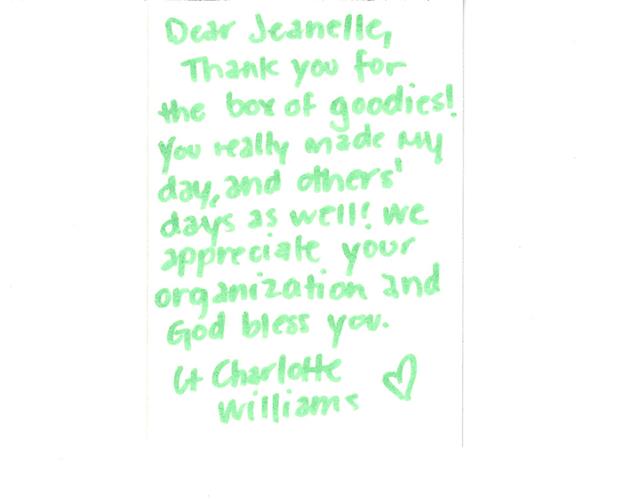 Dear Jeanelle,
Thank you for
the box of goodies!
You really made my
day, and others'
days as well! We
appreciate your
organization and
God bless you.
Lt Charlotte
Williams